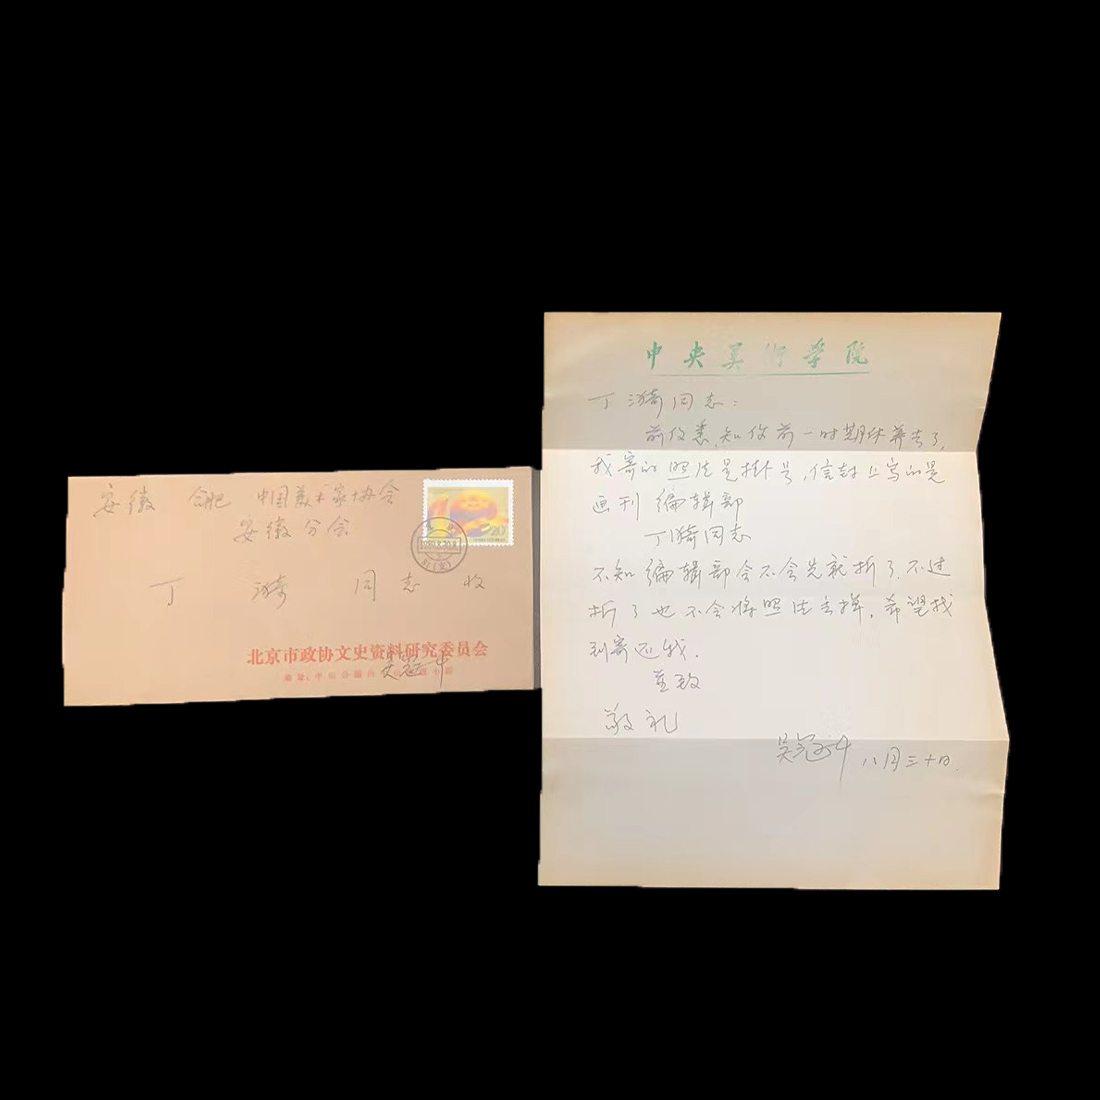 安徽 合肥 中国美术家协会
安徽分会
20
丁 漪 同志 收
北京市政协文史资料研究委员会
吴冠中
中央美术学院
丁漪同志：
前仅悉，知你前一时期休养去了，
我寄的照片是挂号，信封上写的是
画刊编辑部
丁漪同志
不知编辑部会不会先就拆了，不过
拆了也不会将照片丢掉，希望找
到寄还我。
至致
敬礼
吴冠中 八月三十日.